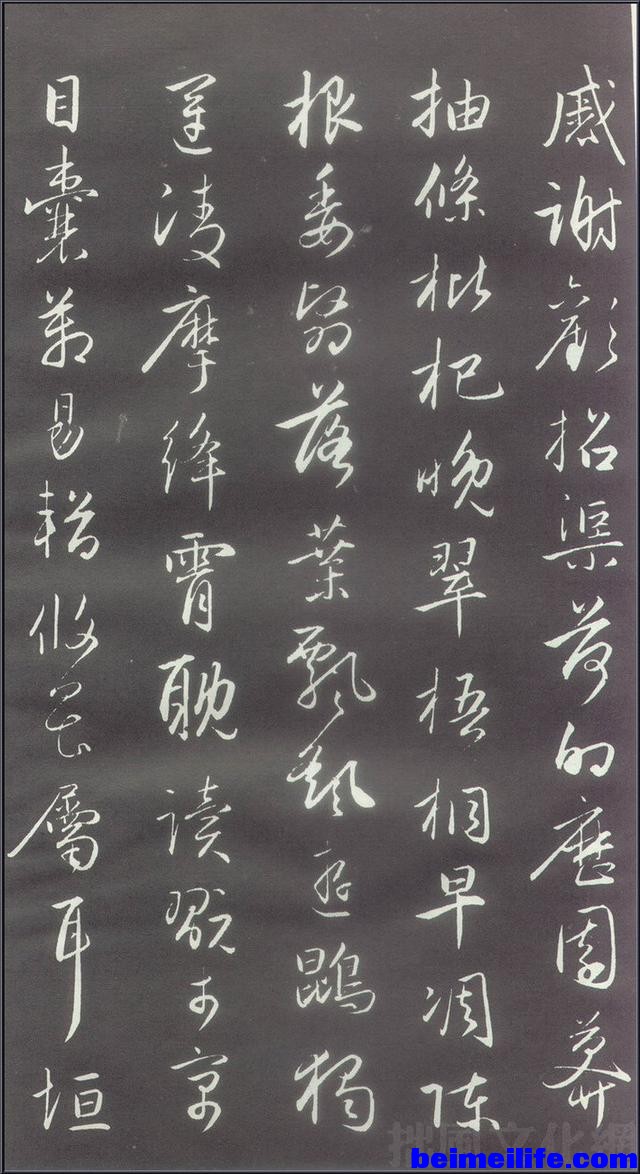 慼謝歡招渠荷的歷園莽
抽條枇杷晚翠梧桐早凋陳
根委翳落葉飄颻遊鵾獨
運淩摩絳霄耽讀翫市寓
目囊箱易輶攸畏屬耳垣
拙風文化網
beimeilife.com